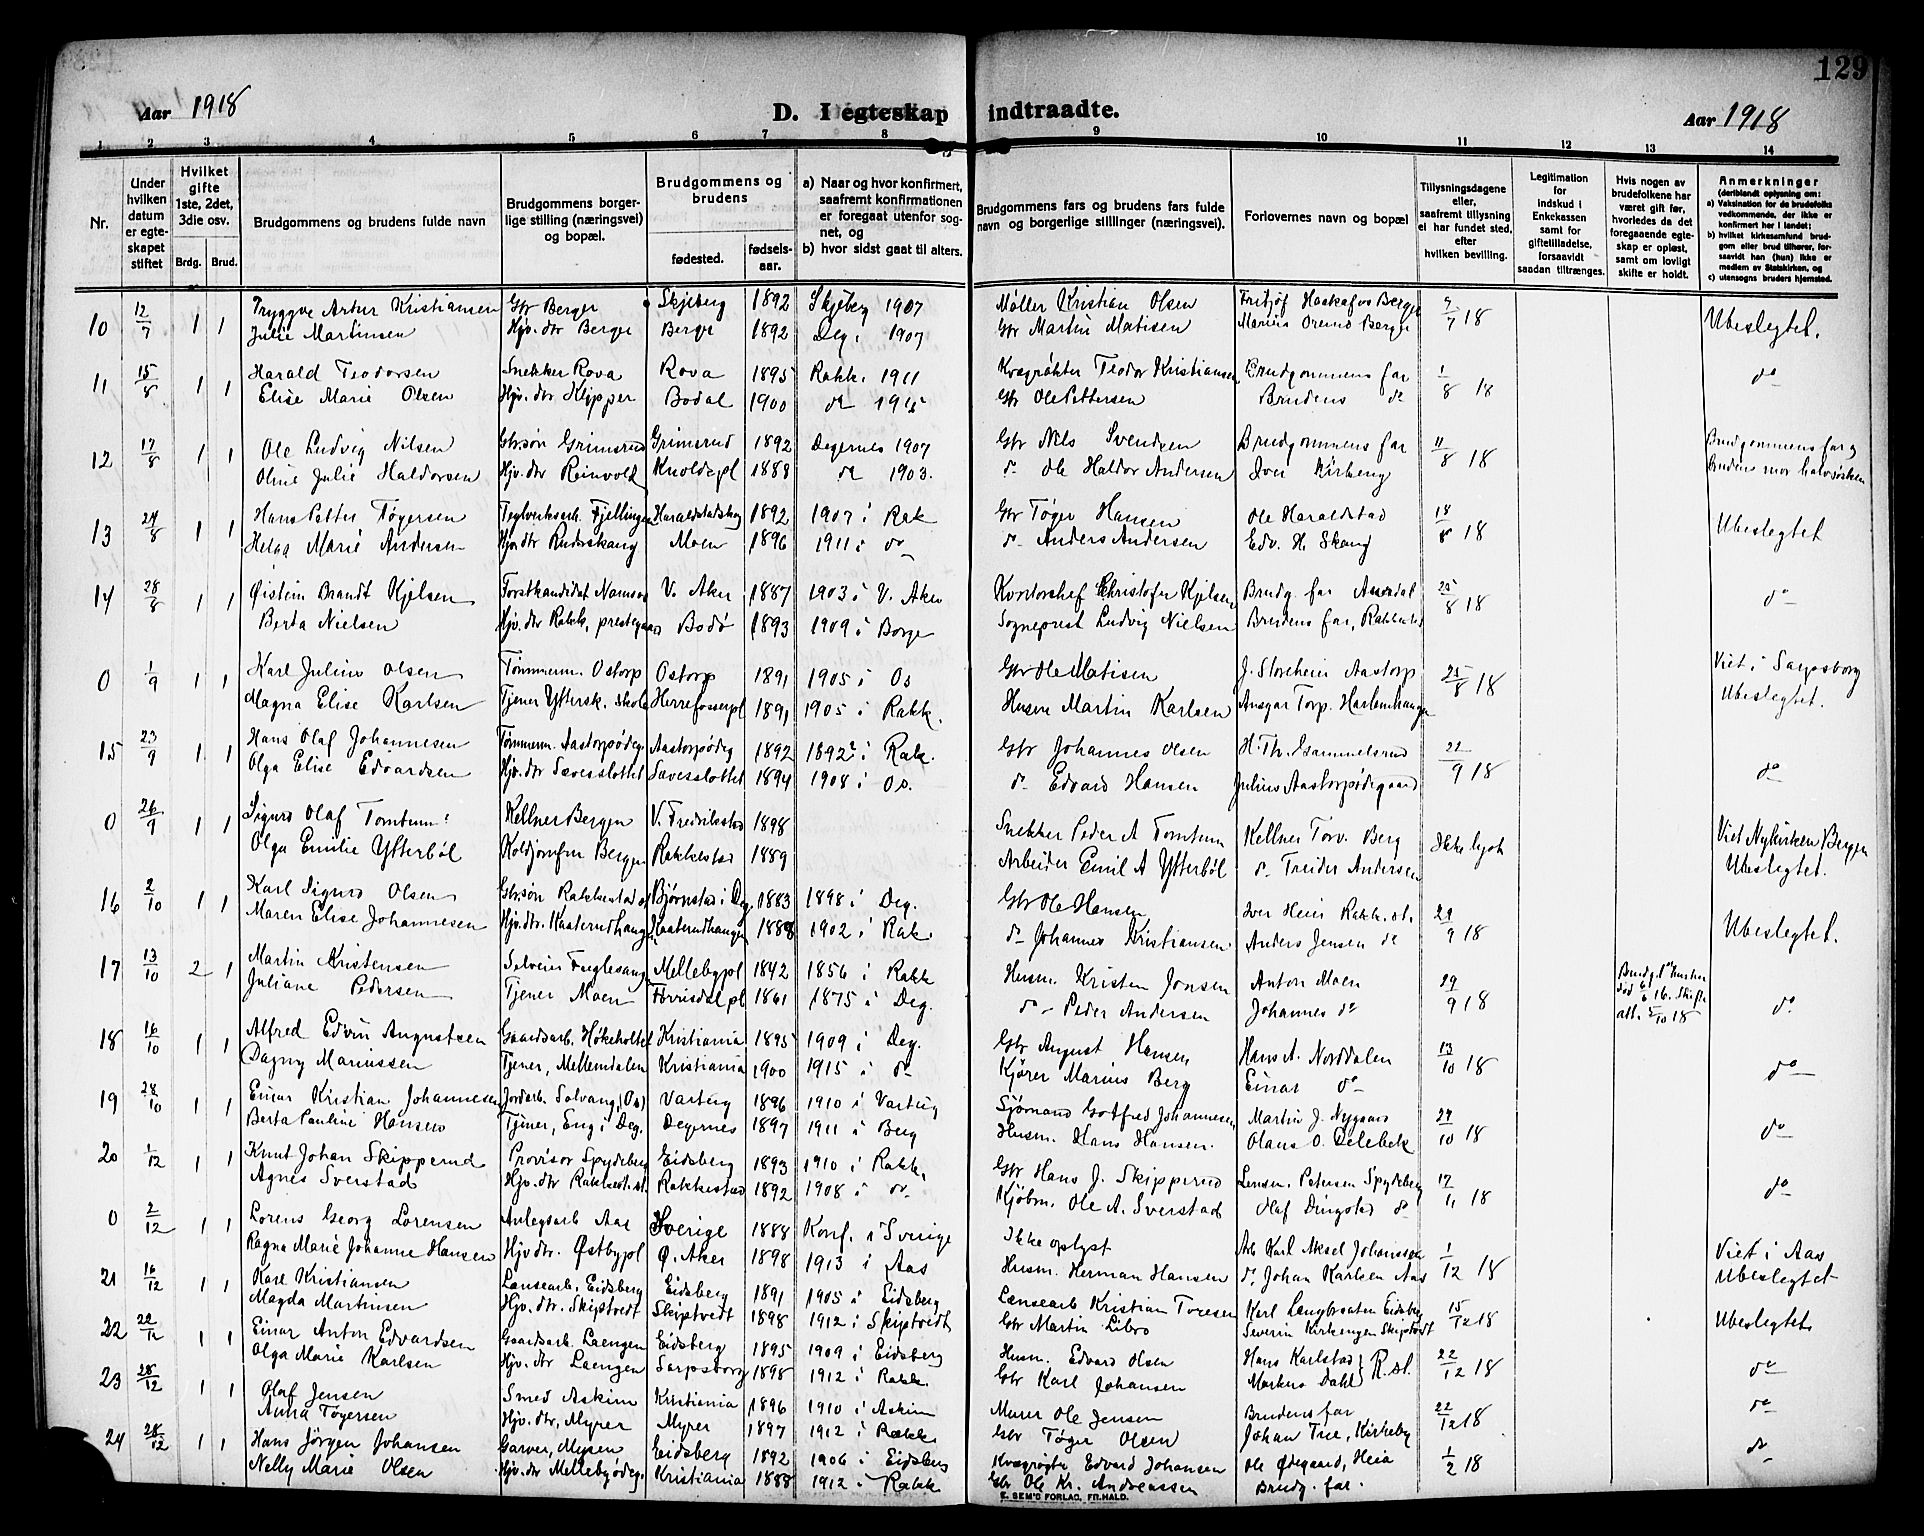 129
Aar 1918
D. I egteskap indtraadte.
Aar 1918
1 2 3 4 5 6 7 8 9 10 11 12 13 14
Nr.
Under hvilken datum er egteskapet stiftet
Hvilket gifte 1ste, 2det, 3die osv.
Brdg. Brud.
Brudgommens og brudens fulde navn
Brudgommens borgerlige stilling (næringsvei) og bopæl.
Brudgommens og brudens
fødested.
fødselsaar.
a) Naar og hvor konfirmert, saafremt konfirmationen er foregaat utenfor sognet, og
b) hvor sidst gaat til alters.
Brudgommens fars og brudens fars fulde navn og borgerlige stillinger (næringsvei).
Forlovernes navn og bopæl
Tillysningsdagene eller, saafremt tillysning ei har fundet sted, efter hvilken bevilling.
Legitimation for indskud i Enkekassen samt for giftetilladelse, forsaavidt saadan tiltrænges.
Hvis nogen av brudefolkene har været gift før, hvorledes da det foregaaende egteskap er opløst, samt om lovligt skifte er holdt.
Anmerkninger
(deriblandt oplysning om:
a) Vaksination for de brudefolks vedkommende, der ikke er konfirmert her i landet;
b) hvilket kirkesamfund brudgom eller brud tilhører, forsaavidt han (hun) ikke er medlem av Statskirken, og
c) utensogns bruders hjemsted.
10 12/7 1 1 Tryggve Artur Kristiansen Gbr Berger Skjeberg 1892 Skjeberg 1907 Møller Kristian Olsen Fritjof Haakafos Berger 7/7 18 Ubeslegtet.
Julie Martinsen Hjv. dtr Berger Berge 1892 Deg. 1907 Gbr Martin Matisen Marius Oremo Berger
11 15/8 1 1 Harald Teodorsen Snekker Rova Rova 1895 Rakk. 1911 Kvægrøkter Teodor Kristiansen Brudgommens far 1/8 18 do
Elise Marie Olsen Hjv. dtr Klypper Bodal 1900 do 1915 Gbr Ole Pettersen Brudens do
12 17/8 1 1 Ole Ludvig Nilsen Gbr.søn Grimsrud Grimsrud 1892 Degernes 1907 Gbr Nils Svendsen Brudgommens far 11/8 18 Brudgommens far og
Oline Julie Haldorsen Hjv. dtr Reinvold Knoldepl 1888 do 1903. do Ole Haldor Andersen Iver Kirkeng Brudens mor halvsøsken
13 24/8 1 1 Hans Petter Tøgersen Teglverksarb. Fjellingen Haraldstadskog 1892 1907 i Rak Gbr Tøger Hansen Ole Haraldstad 18/8 18 Ubeslegtet
Helga Marie Andersen Hjv. dtr Rudsskaug Moen 1896 1911 i do do Anders Andersen Edv. H. Skaug
14 28/8 1 1 Øistein Brandt Kjelsen Forstkandidat Namsos V. Aker 1887 1903 i V. Aker Kontorchef Christofer Kjelsen Brudg. far 25/8 18 do
Berta Nielsen Hjv. dtr Rakk. prestegaard Bodø 1893 1909 i Borge Sogneprest Ludvig Nielsen Brudens far, Rakkestad
0 1/9 1 1 Karl Julius Olsen Tømmerm. Ostorp Ostorp 1891 1905 i Os Gbr Ole Matisen J. Storeheim Aastorp 25/8 18 Viet i Sarpsborg
Magna Elise Karlsen Tjener Yttersk. Skole Herrefosserpl 1891 1905 i Rakk. Husm Martin Karlsen Ansgar Torp. Harlemhaugen Ubeslegtet.
15 23/9 1 1 Hans Olaf Johannesen Tømmerm. Aastorpødeg. Aastorpødeg 1892 1892? i Rak. Gbr Johannes Olsen H. Th. Gammelsrud 22/9 18 do
Olga Elise Edvardsen Hjv. dtr Sævesslottet Sævesslottet 1894 1908 i Os. do Edvard Hansen Julius Aastorpødegaard
0 26/9 1 1 Sigurd Olaf Tomtum Kellner Bergen V. Fredrikstad 1898 Snekker Peder A Tomtum Kellner Torv. Berg Ikke lyst Viet Nykirken Bergen
Olga Emilie Ytterbøl Koldjomfru Bergen Rakkestad 1889 Arbeider Emil A Ytterbøl do Treider Andersen Ubeslegtet.
16 2/10 1 1 Karl Sigurd Olsen Gbr.søn Rakkestad st Bjørnstad i Deg. 1883 1898 i Deg. Gbr Ole Hansen Iver Heier Rakk. st. 29/9 18 Ubeslegtet.
Maren Elise Johannesen Hjv. dtr. Kaaterudhaugen Kaaterudhaugen 1888 1902 i Rak. do Johannes Kristiansen Anders Jensen do
17 13/10 2 1 Martin Kristensen Selveier Fuglesang Mellebypl 1842 1856 i Rakk Husm. Kristen Jonsen Anton Moen 29/9 18 Brudg. 1ste hustru død 6/6 16. Skifteatt. 5/10 18 do
Juliane Pedersen Tjener Moen Torrisdal pl 1861 1875 i Deg. do Peder Andersen Johannes do
18 16/10 1 1 Alfred Edvin Augustsen Gaardsarb. Høkeholtet Kristiania 1895 1909 i Deg. Gbr August Hansen Hans A. Norddalen 13/10 18 do
Dagny Mariussen Tjener, Mellemdalen Kristiania 1900 1915 i do Kjører Marius Berg Einar do
19 28/10 1 1 Einar Kristian Johannesen Jordarb. Solvang, (Os) Varteig 1896 1910 i Varteig Sjømand Gotfred Johannesen Martin J. Nygaard 27/10 18 do
Berta Pauline Hansen Tjener, Eng i Deg. Degernes 1897 1911 i Berg Husm. Hans Hansen. Olaus O. Delebek
20 1/12 1 1 Knut Johan Skipperud Provisor Spydeberg Eidsberg 1893 1910 i Rakk. Gbr Hans J. Skipperud Lensm. Petersen Spydeberg 17/11 18 do
Agnes Sverstad Hjv. dtr Rakkest. st. Rakkestad 1892 1908 i do Kjøbm. Ole A. Sverstad Olaf Dingstad do
0 2/12 1 1 Lorens Georg Lorensen Anlegsarb Aas Sverige 1888 Konf. i Sverige Ikke oplyst Arb Karl Aksel Johansson 1/12 18 Viet i Aas
Ragna Marie Johanne Hansen Hjv dtr. Østbypl Ø. Aker 1898 1913 i Aas Husm. Herman Hansen do Johan Karlsen Aas Ubeslegtet
21 16/12 1 1 Kare Kristiansen Lænsearb. Eidsberg Eidsberg 1891 1905 i Eidsberg Lænsearb Kristian Toresen Karl Langbraaten Eidsberg 15/12 18 Ubeslegtet
Magda Martinsen Hjv. dtr. Skiptvedt Skiptvedt 1898 1912 i Skiptvedt Gbr Martin Libro Severin Kirkengen Skiptvedt
22 22/12 1 1 Einar Anton Edvardsen Gaardsarb. Laengen Eidsberg 1895 1909 i Eidsberg Husm. Edvard Olsen Hans Karlstad } R. st. 22/12 18 do
Olga Marie Karlsen Hjv. dtr Laengen Sarpsborg 1898 1912 i Rakk. Gbr Karl Johansen Markus Dahl
23 28/12 1 1 Olaf Jensen Smed Askim Kristiania 1896 1910 i Askim Murer Ole Jensen Brudens far 22/12 18 do
Anna Tøgersen Hjv. dtr, Myrer Myrer 1897 1912 i Rakk. Gbr Tøger Olsen Johan Trie, Kirkeby
24 28/12 1 1 Hans Jørgen Johansen Garver, Mysen Eidsberg 1892 1906 i Eidsberg Kvægrøgte Edvard Johansen Ole Ødegaard, Heia 1/2 18 do
Nelly Marie Olsen Hjv. dtr Mellebyødeg. Kristiania 1888 1912 i Rakk Gbr Ole Kr. Andreassen Brudg. far.
E. SEM'S FORLAG, FR.HALD.